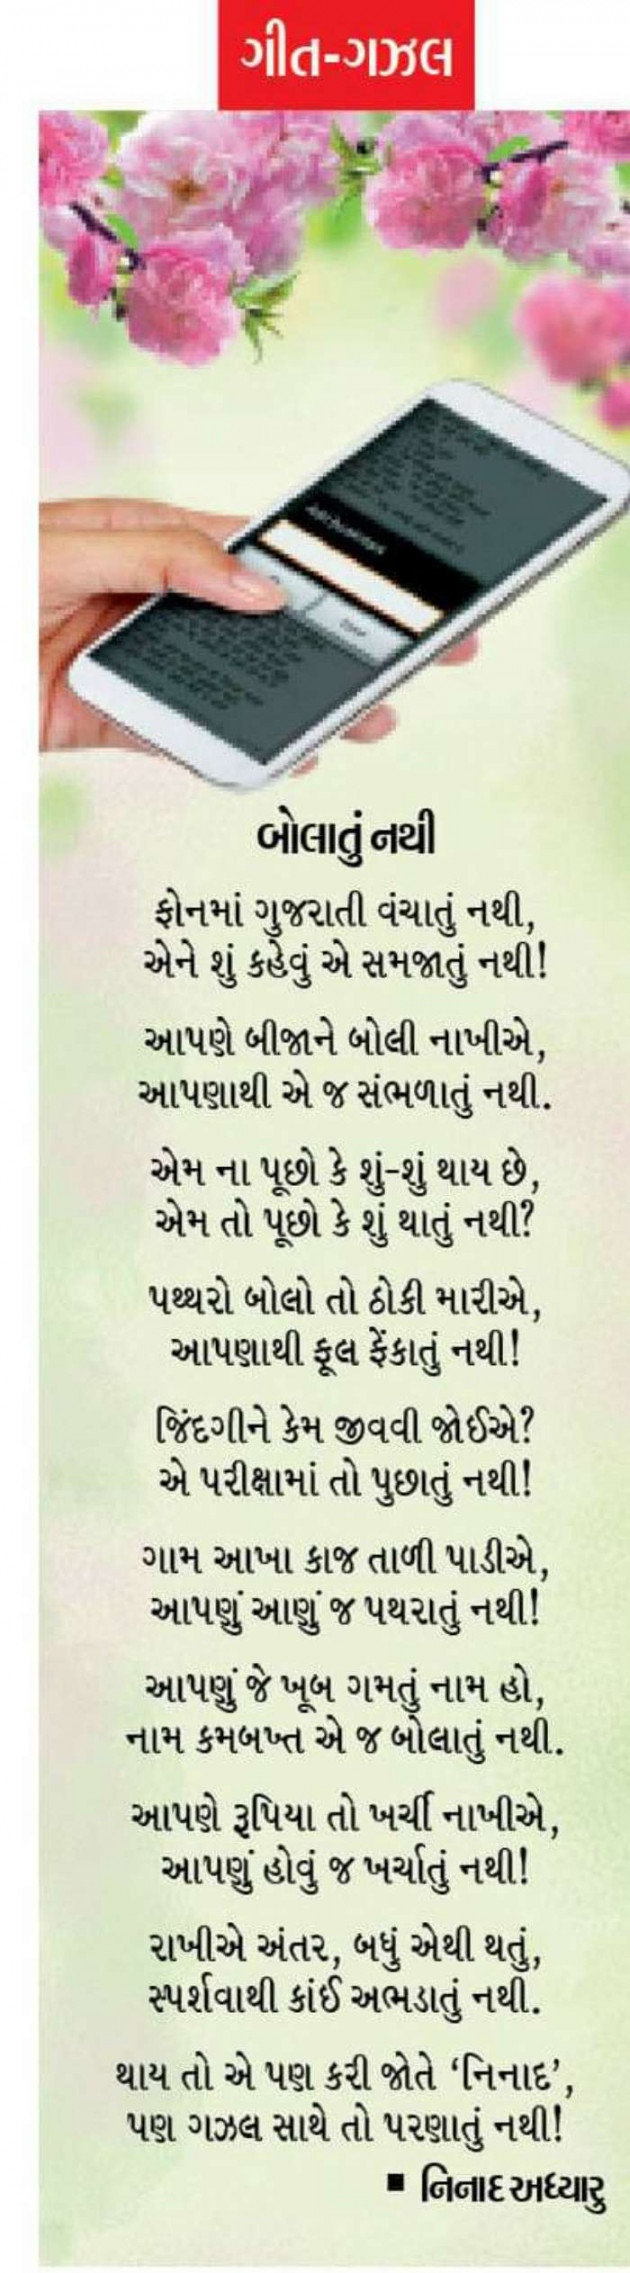 ગીત-ગઝલ
બોલાતું નથી
ફોનમાં ગુજરાતી વંચાતું નથી,
એને શું કહેવું એ સમજાતું નથી!
આપણે બીજાને બોલી નાખીએ,
આપણાથી એ જ સંભળાતું નથી.
એમ ના પૂછો કે શું-શું થાય છે,
એમ તો પૂછો કે શું થાતું નથી?
પથ્થરો બોલો તો ઠોકી મારીએ,
આપણાથી ફૂલ ફેંકાતું નથી!
જિંદગીને કેમ જીવવી જોઈએ?
એ પરીક્ષામાં તો પુછાતું નથી!
ગામ આખા કાજ તાળી પાડીએ,
આપણું આણું જ પથરાતું નથી!
આપણું જે ખૂબ ગમતું નામ હો,
નામ કમબખ્ત એ જ બોલાતું નથી.
આપણે રૂપિયા તો ખર્ચી નાખીએ,
આપણું હોવું જ ખર્ચાતું નથી!
રાખીએ અંતર, બધું એથી થતું,
સ્પર્શવાથી કાંઈ અભડાતું નથી.
થાય તો એ પણ કરી જોતે ‘નિનાદ’,
પણ ગઝલ સાથે તો પરણાતું નથી!
▪ નિનાદ અધ્યારુ